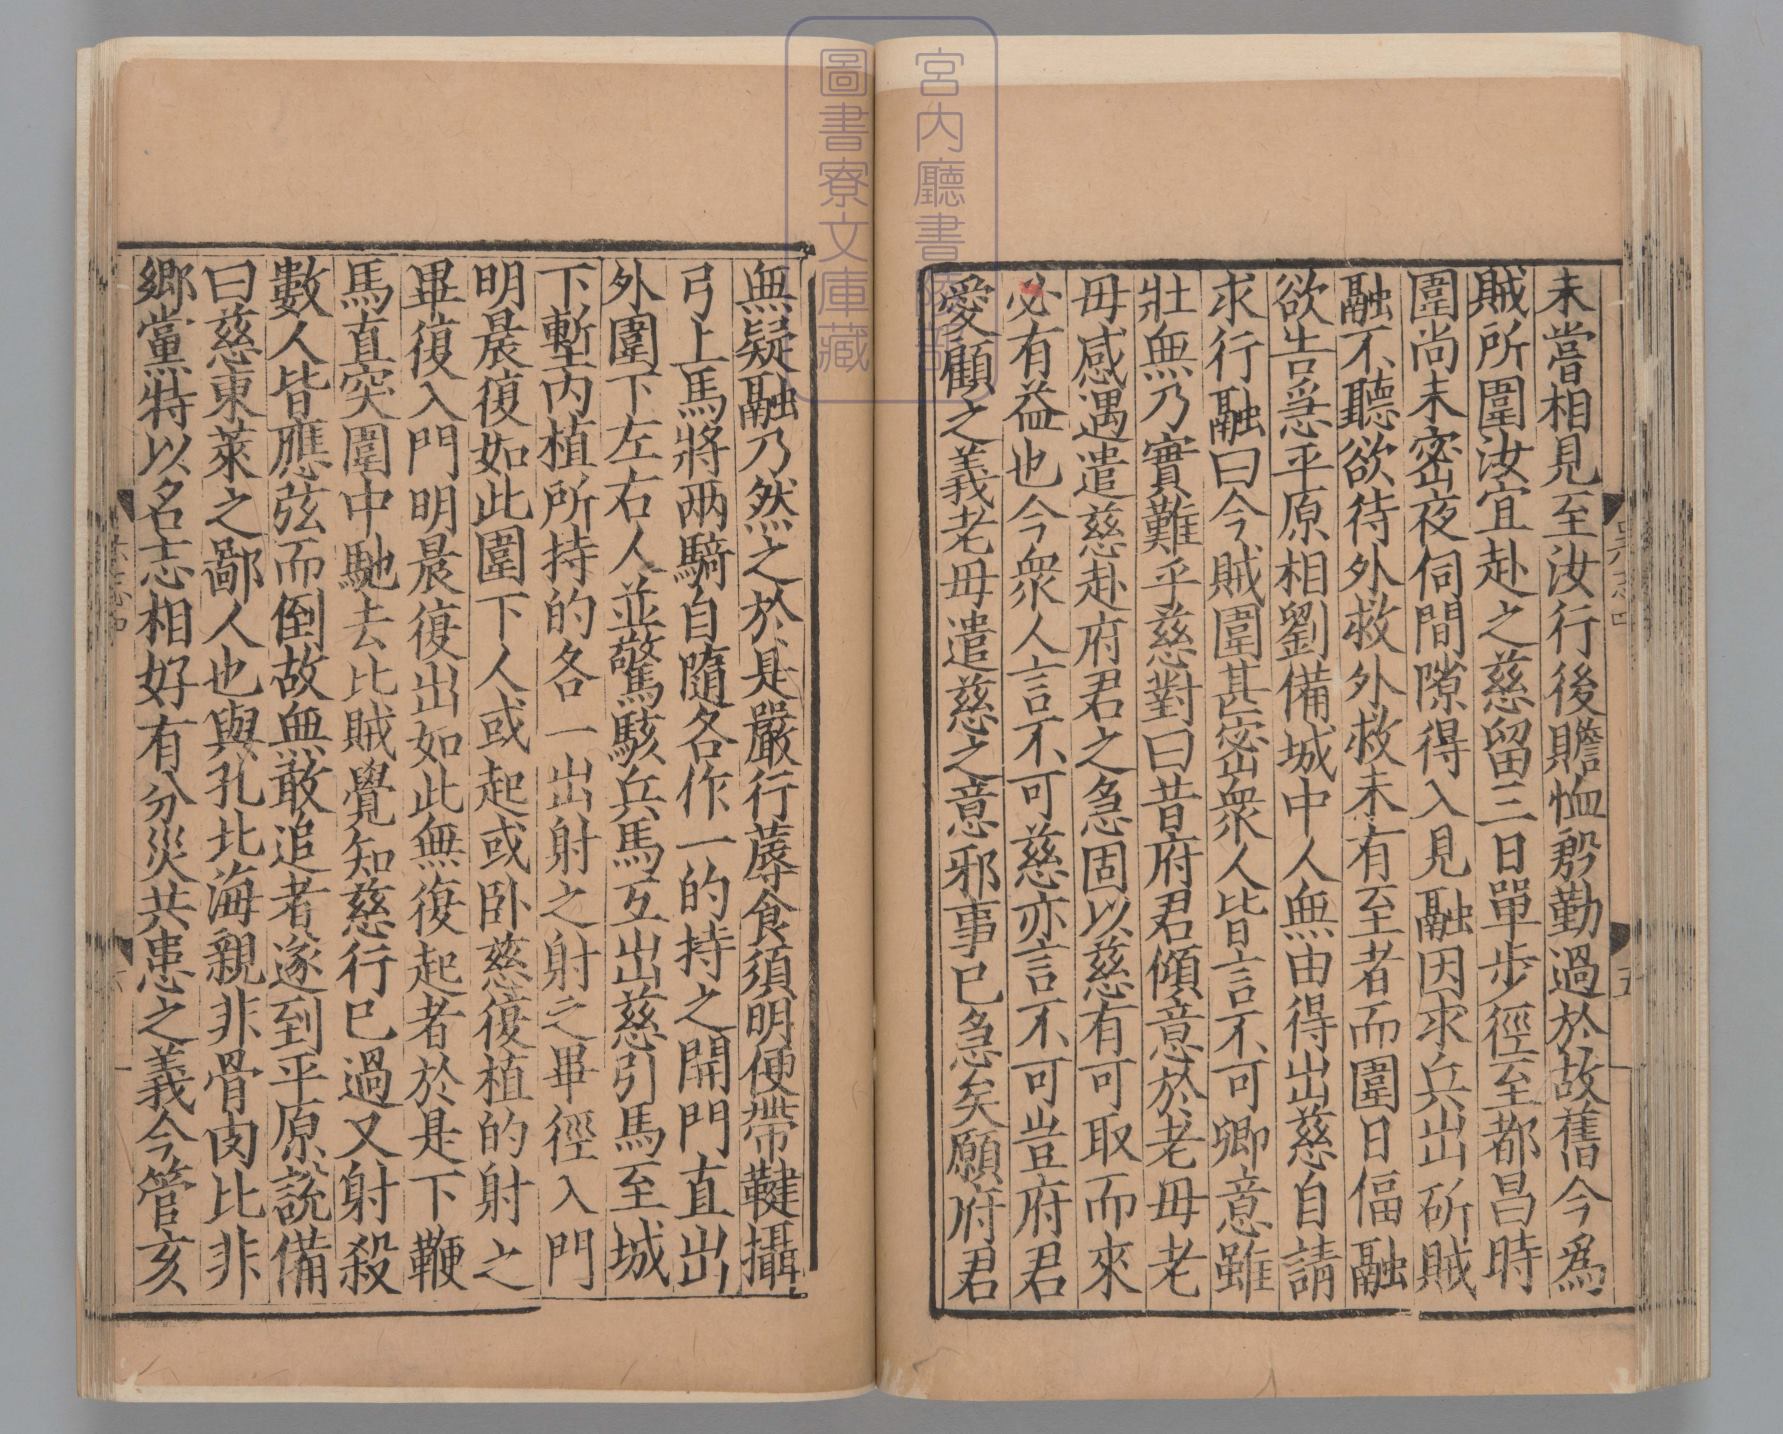 未嘗相見至汝行後贍恤殷勤過於故舊今爲
賊所圍汝宜赴之慈留三日單步徑至都昌時
圍尚未密夜伺間隙得入見融因求兵出斫賊
融不聽欲待外救外救未有至者而圍日偪融
欲告急平原相劉備城中人無由得出慈自請
求行融曰今賊圍甚密衆人皆言不可卿意雖
壯無乃實難乎慈對曰昔府君傾意於老母老
母感遇遣慈赴府君之急固以慈有可取而來
必有益也今衆人言不可慈亦言不可豈府君
愛顧之義老母遣慈之意邪事已急矣願府君
無疑融乃然之於是嚴行蓐食須明便帶鞬攝
弓上馬將两騎自隨各作一的持之開門直出
外圍下左右人並驚駭兵馬互出慈引馬至城
下塹内植所持的各一出射之射之畢徑入門
明晨復如此圍下人或起或卧慈復植的射之
畢復入門明晨復出如此無復起者於是下鞭
馬直突圍中馳去比賊覺知慈行已過又射殺
數人皆應弦而倒故無敢追者遂到平原說備
曰慈東萊之鄙人也與孔北海親非骨肉比非
鄉黨特以名志相好有分災共患之義今管亥
吳志四
五
宮内廳書陵部
圖書寮文庫藏